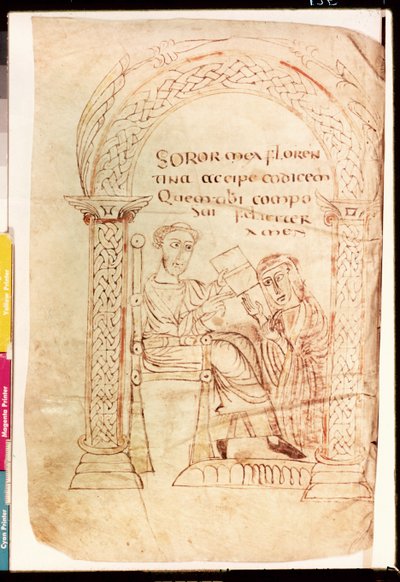 SOROR mea FLOREN
tina accipe codicem
Quem tibi compo
sui feliciter
amen
Yellow Printer
Magenta Printer
Cyan Printer